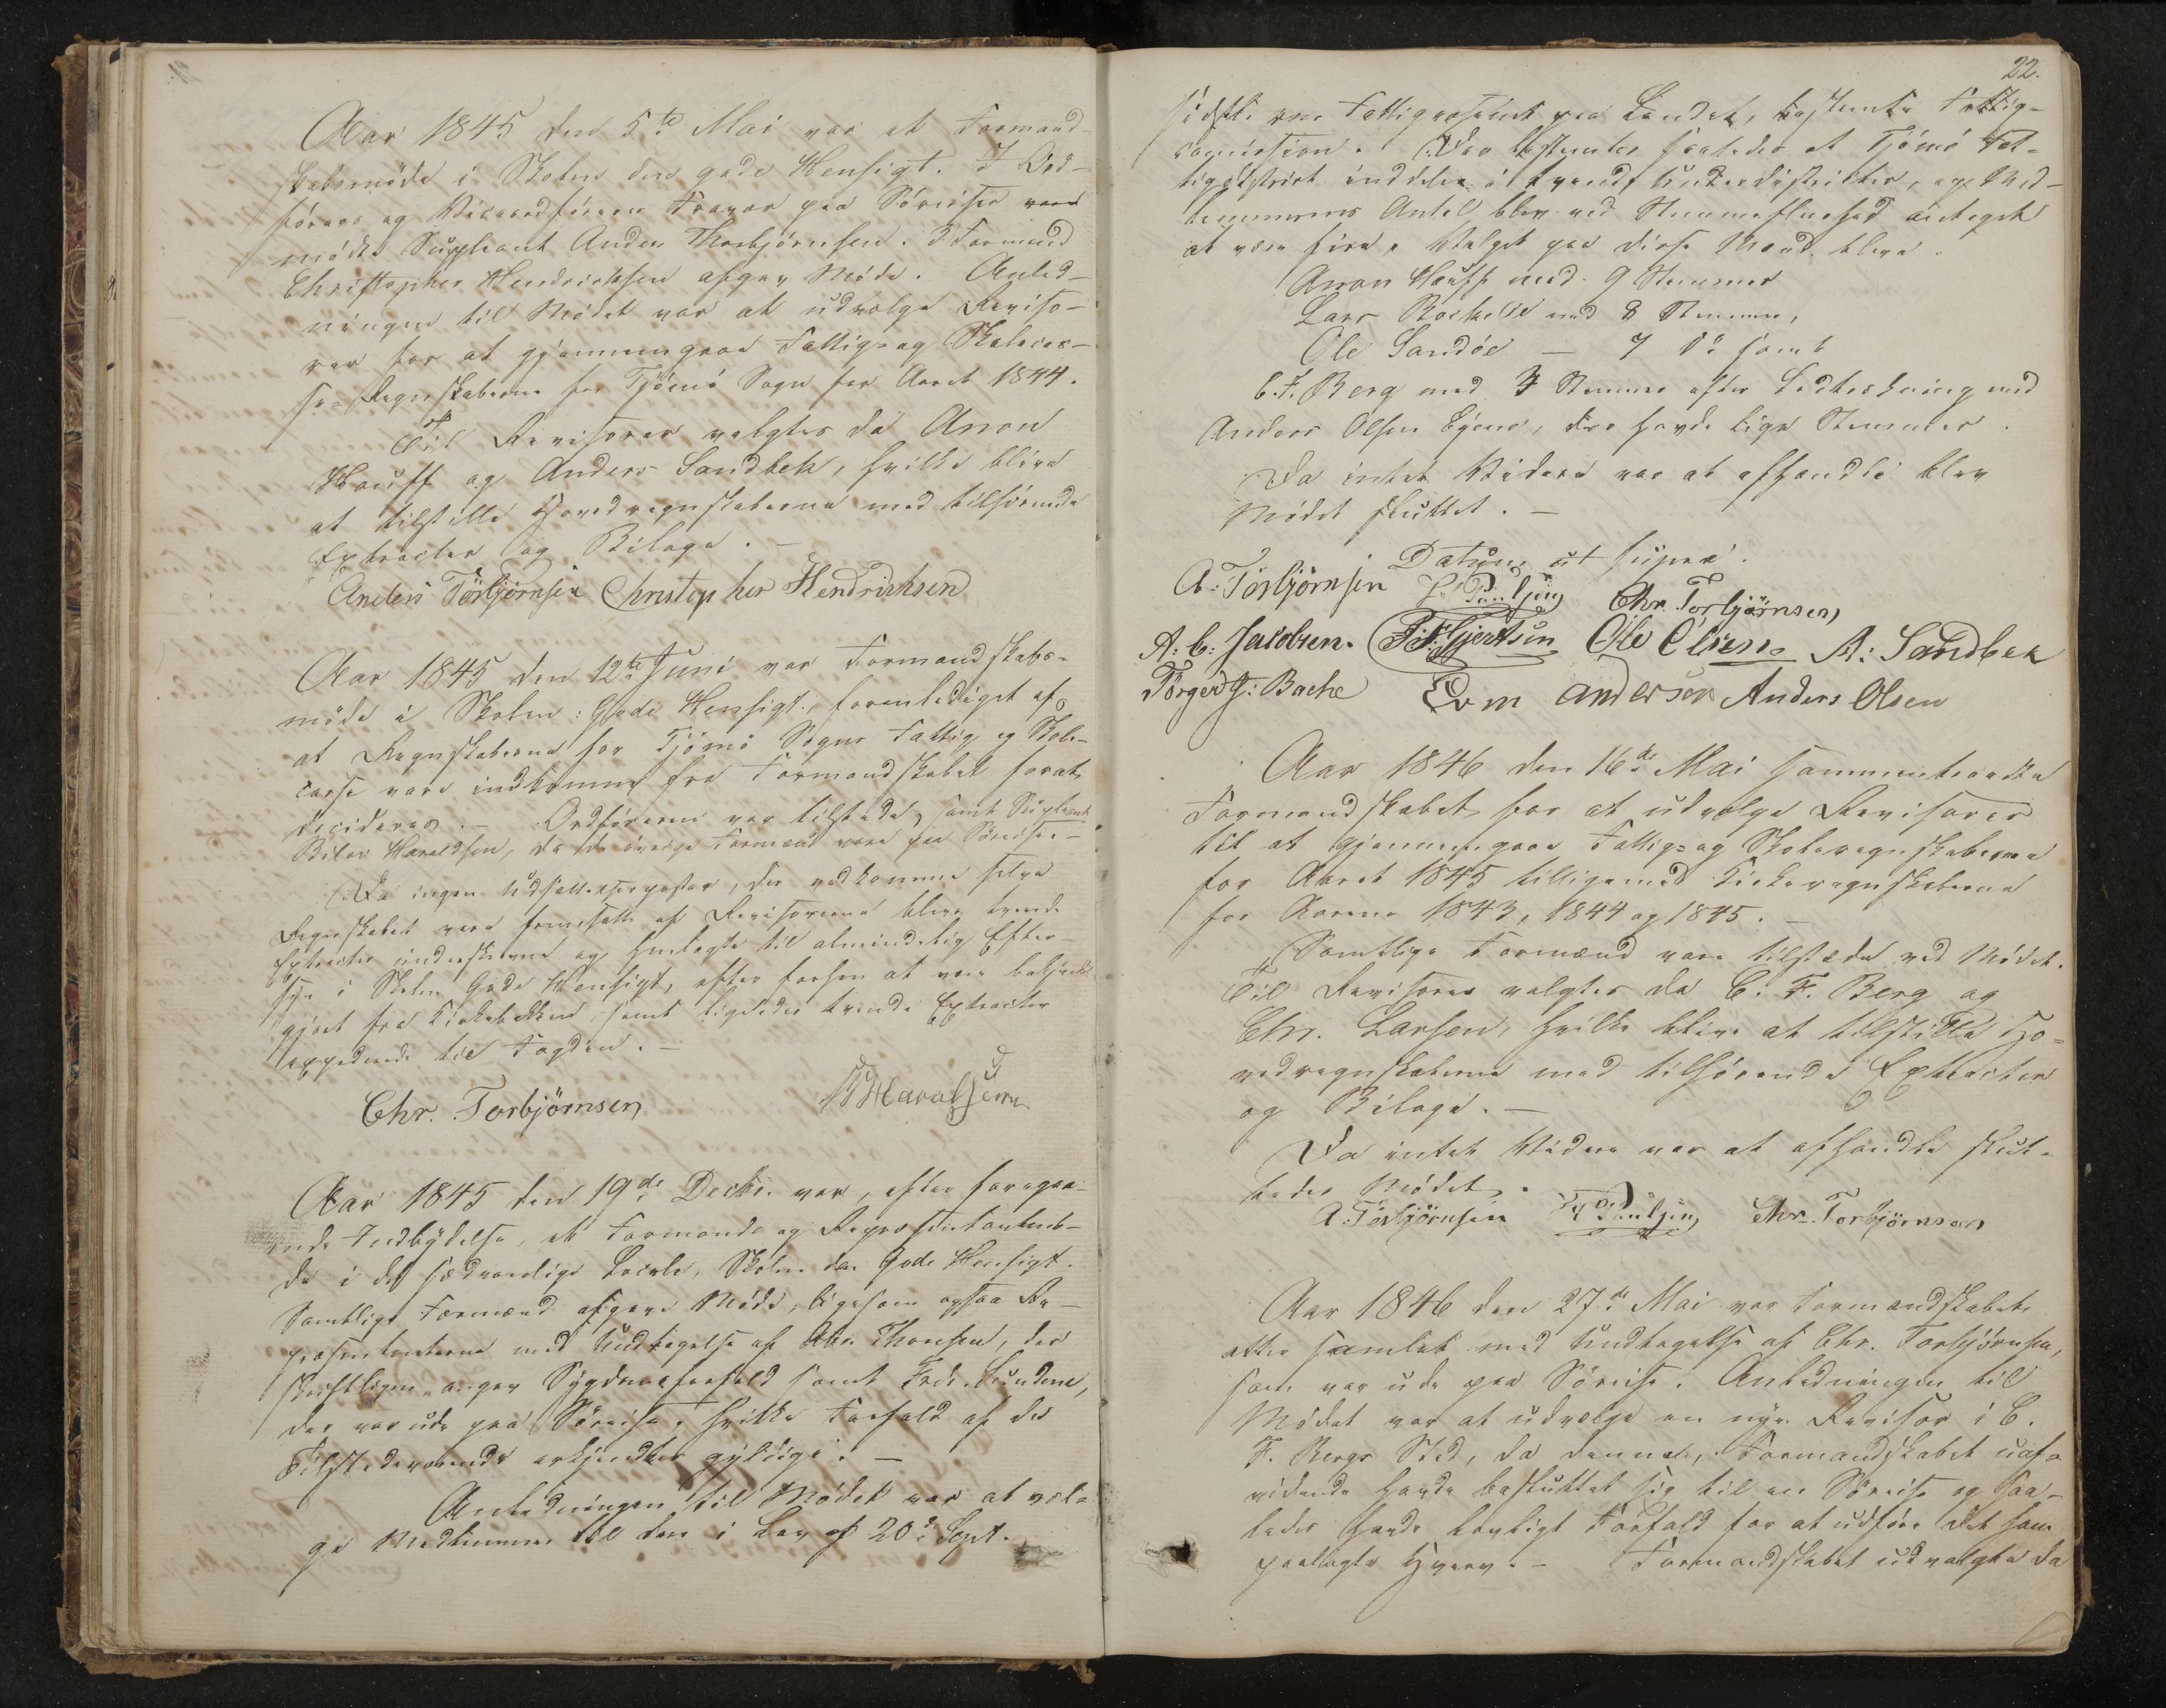 Aar 1845 den 5te Mai var et Formand-
skabsmöde i Skolen den gode Hensigt. I Ord-
förers og Viceordförers Fravær paa Söreise
mödte Supleant Anders Thorbjörnsen. 3 Formænd
Christopher Hendrichsen afgav Möde. Anled-
ningen til Mödet var at udvælge Reviso-
rer for at gjennemgaae Fattig- og Skolecas-
se-Regnskaberne for Tjömö Sogn for Aaret 1844.
Til Revisorer valgtes da Aron
Hauff og Anders Sandbek, hvilke blive
at tilstille Hovedregnskaberne med tilhörende
Extracter og Bilage. —
Anders Törbjörnsen Christopher Hendrichsen
Aar 1845 den 12te Juni var Formandskabs-
möde i Skolen: Gode Hensigt, foranlediget af
at Regnskaberne for Tjömö Sogns Fattig og Skole-
casse vare indkomne fra Formandskabet for at
decideres. — Ordföreren var tilstede, samt Supleant
Biler Haraldsen, da de övrige Formænd vare paa Söreise. —
Da ingen Udsættelsesposter, der vedkomme selve
Regnskabet vare fremsatte af Revisorerne bleve tvende
Extracter underskrevne og henlagte til almindelig Efter-
syn i Skolen Gode Hensigt, efter forhen at være bekjendt-
gjort fra Kirkebakken, samt ligeledes tvende Extracter
expederede til Fogden. —
Chr. Torbjörnsen B Haralsen
Aar 1845 den 19de Decbr. var, efter foregaa-
ende Indbydelse, et Formands og Repræsentantmö-
de i det sædvanlige Locale, Skolen den Gode Hensigt.
Samtlige Formænd afgave Möde, ligesom ogsaa Re-
præsentanterne med Undtagelse af Abr. Thorsen, der
skriftligen angav Sygdomsforfald samt Fredr. Sundene,
der var ude paa Söreise, hvilke Forfald af de
Tilstedeværende erkjendtes gyldige. —
Anledningen til Mödet var at væl-
ge Medlemmer til den i Lov af 20de Sept.
22.
sidstl. om Fattigvæsenet paa Landet, bestemte Fattig-
commission. Der bestemtes saaledes at Tjömö Fat-
tigdistrict inddeles i tvende Underdistrikter, og Med-
lemmernes Antal blev ved Stemmefleerhed antaget
at være fire. Valget paa disse Mænd bleve
Aron Hauff med 9 Stemmer
Lars Rockelse med 8 Stemmer,
Ole Sandöe — 7 do samt
C. F. Berg med 3 Stemmer efter Lodtrækning med
Anders Olsen Eiene, der havde lige Stemmer.
Da intet Videre var at afhandle blev
Mödet sluttet. —
Datum ut supra.
A. Törbjörnsen F Paulsen Chr. Torbjörnsen
A. C. Jacobsen. F. F. Gjertsen Ole Olsen A: Sandbek
Törger J: Bache Evm andersen Anders Olsen
Aar 1846 den 16de Mai sammentraadte
Formandskabet for at udvælge Revisorer
til at gjennemgaae Fattig- og Skoleregnskaberne
for Aaret 1845 tilligemed Kirkeregnskaberne
for Aarene 1843, 1844 og 1845. —
Samtlige Formænd vare tilstæde ved Mödet.
Til Revisorer valgtes da C. F. Berg og
Chr. Larsen, hvilke blive at tilstille Ho-
vedregnskaberne med tilhörende Extracter
og Bilage. —
Da intet Videre var at afhandle slut-
tedes Mödet.
A. Törbjörnsen F Paulsen Chr. Torbjörnsen
Aar 1846 den 27de Mai var Formandskabet
atter samlet med Undtagelse af Chr. Torbjörnsen,
som var ude paa Söreise. Anledningen til
Mödet var at udvælge en nye Revisor i C.
F. Bergs Sted, da denne, Formandskabet uaf-
vidende havde besluttet sig til en Söreise og saa-
ledes havde lovligt Forfald for at udföre det ham
paalagte Hverv. — Formandskabet udvalgte da